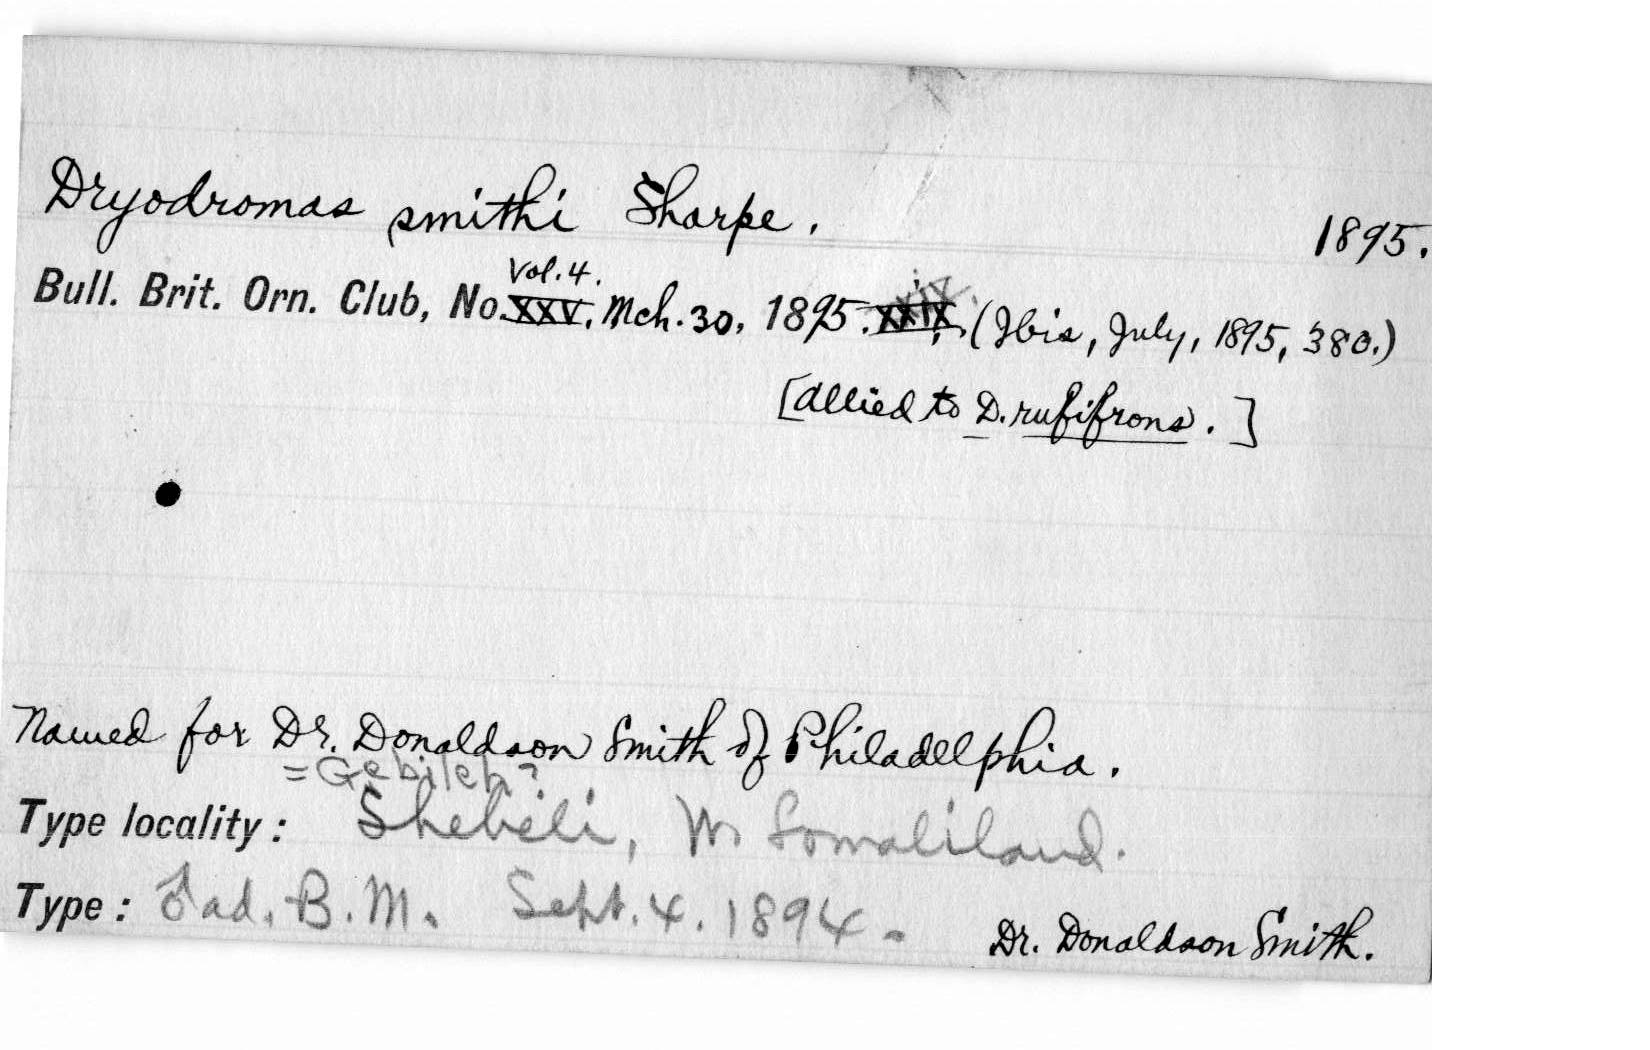 Dryodromas smithi Sharpe. 1895.
Vol. 4.
Bull. Brit. Orn. Club, No. XXV, Mch. 30, 1895. xxix, (Ibis, July, 1895, 380.)
[allied to D. rufifrons.]
Named for Dr. Donaldson Smith of Philadelphia.
= Gebileh?
Type locality: Shebeli, W. Somaliland.
Type: ad. B.M. Sept. 4. 1894. Dr. Donaldson Smith.